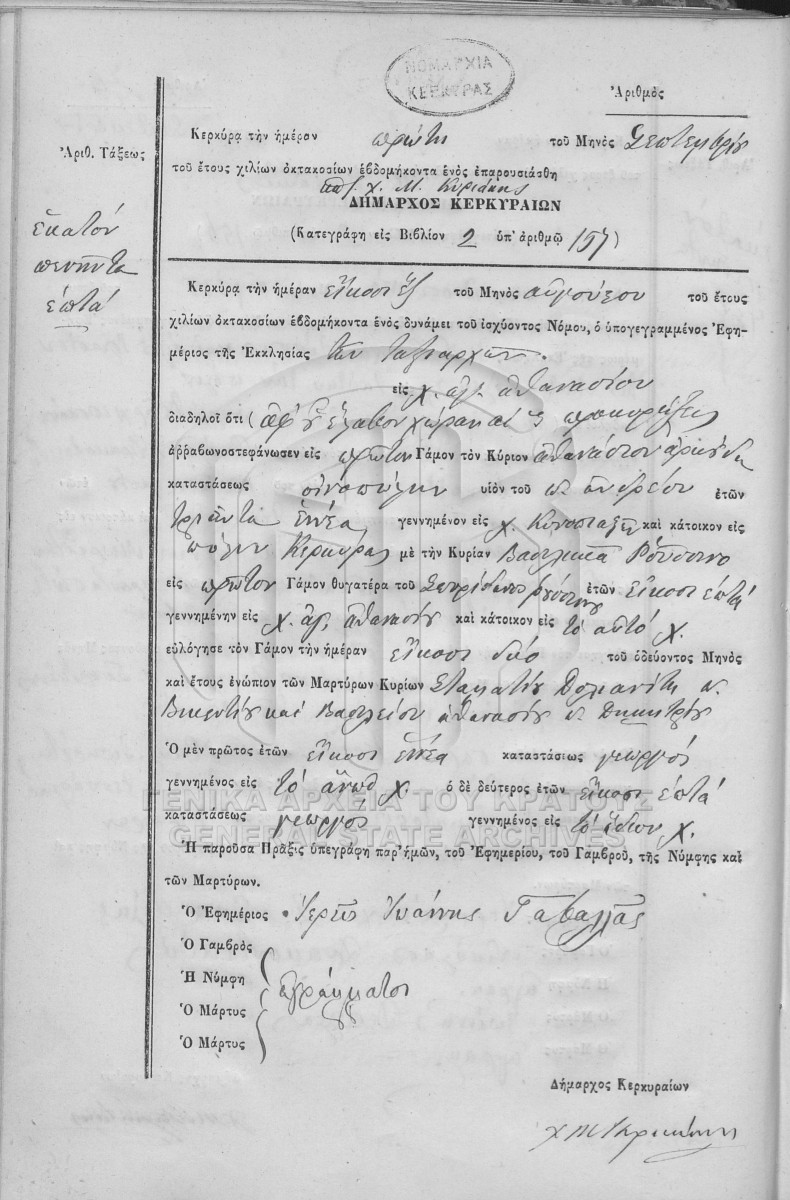 ΝΟΜΑΡΧΙΑ
ΚΕΡΚΥΡΑΣ
Ἀριθμὸς
Ἀριθ. Τάξεως
ἑκατόν
πενῆντα
ἑπτά
Κερκύρα τὴν ἡμέραν πρώτη τοῦ Μηνὸς Σεπτεμβρίου
τοῦ ἔτους χιλίων ὀκτακοσίων ἑβδομήκοντα ἑνὸς ἐπαρουσιάσθη
Χ. Μ. Κυριάκης
ΔΗΜΑΡΧΟΣ ΚΕΡΚΥΡΑΙΩΝ
(Κατεγράφη εἰς Βιβλίον 2 ὑπ' ἀριθμῷ 157)
Κερκύρᾳ τὴν ἡμέραν εἴκοσι ἕξ τοῦ Μηνὸς αὐγούστου τοῦ ἔτους
χιλίων ὀκτακοσίων ἑβδομήκοντα ἑνὸς δυνάμει τοῦ ἰσχύοντος Νόμου, ὁ ὑπογεγραμμένος Ἐφη-
μέριος τῆς Ἐκκλησίας τῶν ταξιαρχῶν.
εἰς χ. ἁγ. ἀθανασίου
διαδηλοῖ ὅτι (ἀφ' οὗ ἔλαβον χώραν αἱ 3 προκηρύξεις
ἀῤῥαβωνοστεφάνωσεν εἰς πρῶτον Γάμον τὸν Κύριον ἀθανάσιον
καταστάσεως οἰνοπώλην υἱὸν τοῦ π. ἀνδρέου ἐτῶν
τριάντα ἐννέα γεννημένον εἰς χ. Κυνοπιάστη καὶ κάτοικον εἰς
πόλιν Κερκύρας μὲ τὴν Κυρίαν Βασιλικὴ Ρούσσινο
εἰς πρῶτον Γάμον θυγατέρα τοῦ Σπυρίδωνος ρούσσινου ἐτῶν εἴκοσι ἑπτά
γεννημένην εἰς χ. ἁγ. ἀθανασίου καὶ κάτοικον εἰς τὸ αὐτό χ.
εὐλόγησε τὸν Γάμον τὴν ἡμέραν εἴκοσι δύο τοῦ ὁδεύοντος Μηνὸς
καὶ ἔτους ἐνώπιον τῶν Μαρτύρων Κυρίων Σταματίου Δολιανίτη π.
Βικεντίου καὶ Βασιλείου ἀθανασίου π. Δημητρίου
Ὁ μὲν πρῶτος ἐτῶν εἴκοσι ἐννέα καταστάσεως γεωργός
γεννημένος εἰς τὸ ἄνωθ χ. ὁ δὲ δεύτερος ἐτῶν εἴκοσι ἑπτά
καταστάσεως γεωργός γεννημένος εἰς τὸ ἴδιον χ.
Ἡ παροῦσα Πρᾶξις ὑπεγράφη παρ' ἡμῶν, τοῦ Ἐφημερίου, τοῦ Γαμβροῦ, τῆς Νύμφης καὶ
τῶν Μαρτύρων.
Ὁ Ἐφημέριος Ἱερεὺς Ἰωάννης Γαβαλλᾶς
Ὁ Γαμβρὸς
Ἡ Νύμφη
ἀγράμματοι
Ὁ Μάρτυς
Ὁ Μάρτυς
Δήμαρχος Κερκυραίων
Χ Μ Κυριάκης
ΓΕΝΙΚΑ ΑΡΧΕΙΑ ΤΟΥ ΚΡΑΤΟΥΣ
GENERAL STATE ARCHIVES